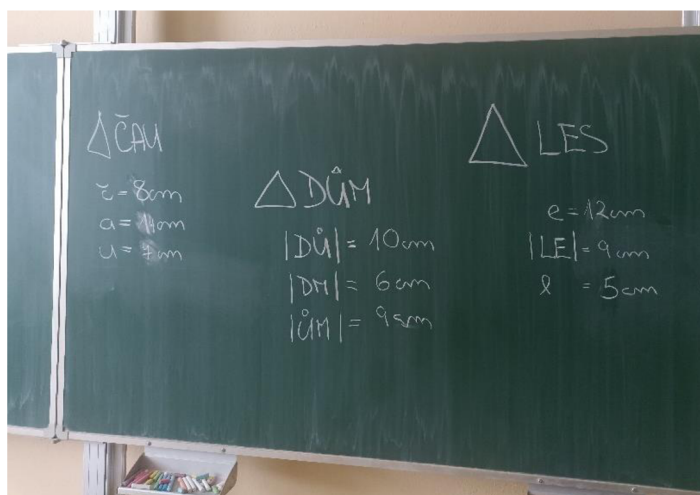 △ ČAU
č = 8cm
a = cm
u = 7cm
△ DŮM
|DŮ| = 10cm
|DM| = 6cm
|ŮM| = 9cm
△ LES
e = 12cm
|LE| = 9cm
l = 5cm